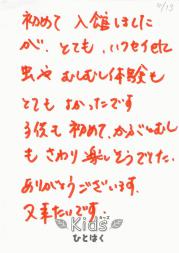 11/13
初めて 入館しました
が、とても、いつせいせに
虫や むしむし体験も
とても よかったです
子供も初めて、かぶとむし
も さわり楽しそうでした。
ありがとうございます。
又来たいです。
Kids
キッズ
ひとはく